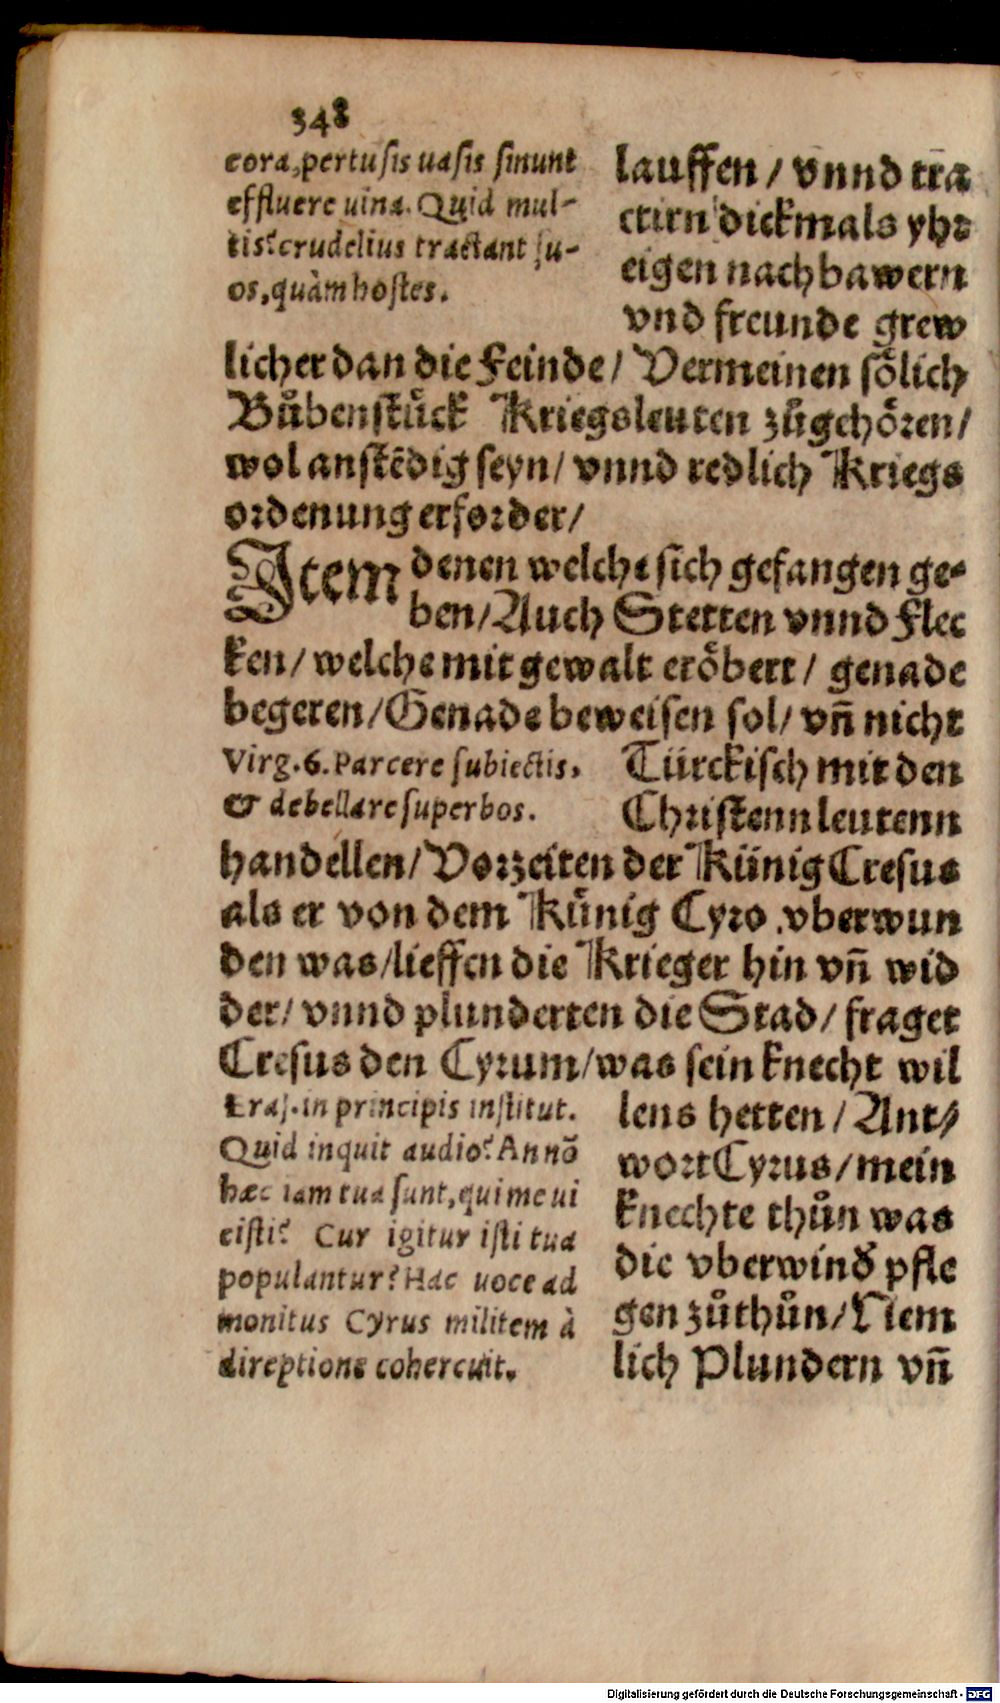 348
cora, pertusis uasis sinunt
effluere uina. Quid mul-
tis? crudelius tractant su-
os, quàm hostes.
lauffen / vnnd tra
ctirn dickmals yhr
eigen nachbawern
vnd freunde grew
licher dan die Feinde / Vermeinen soͤlich
Buͦbenstuͤck Kriegsleuten zuͦgehoͤren /
wol anstēdig seyn / vnnd redlich Kriegs
ordenung erforder /
Item denen welche sich gefangen ge-
ben / Auch Stetten vnnd Flec
ken / welche mit gewalt eroͤbert / genade
begeren / Genade beweisen sol / vn̄ nicht
Virg. 6. Parcere subiectis,
& debellare superbos.
Türckisch mit den
Christenn leutenn
handellen / Vorzeiten der Künig Cresus
als er von dem Kuͤnig Cyro vberwun
den was / lieffen die Krieger hin vn̄ wid
der / vnnd plunderten die Stad / fraget
Cresus den Cyrum / was sein knecht wil
Eras. in principis institut.
Quid inquit audio? An nō
hæc iam tua sunt, qui me ui
cisti? Cur igitur isti tua
populantur? Hac uoce ad
monitus Cyrus militem à
direptione cohercuit.
lens hetten / Ant-
wort Cyrus / mein
knechte thuͦn was
die vberwind pfle
gen zuͦthuͦn / Nem
lich Plundern vn̄
Digitalisierung gefördert durch die Deutsche Forschungsgemeinschaft - DFG